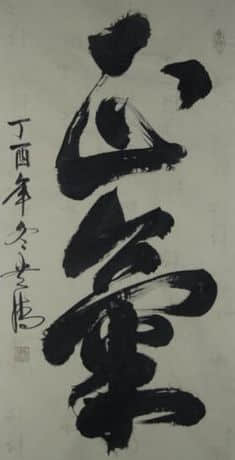 正氣
丁酉年冬